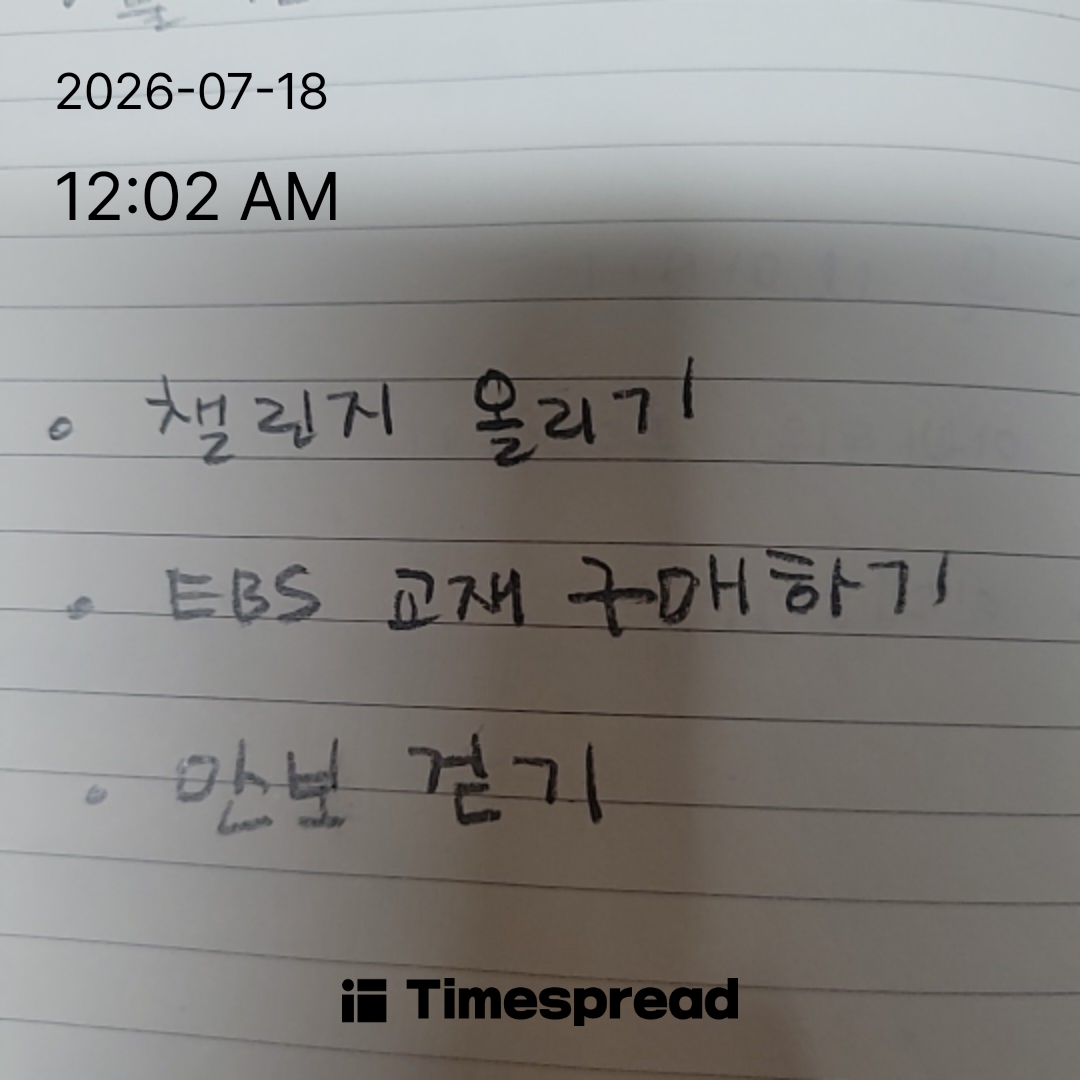 2026-07-18
12:02 AM
챌린지 올리기
EBS 교재 구매하기
만보 걷기
Timespread